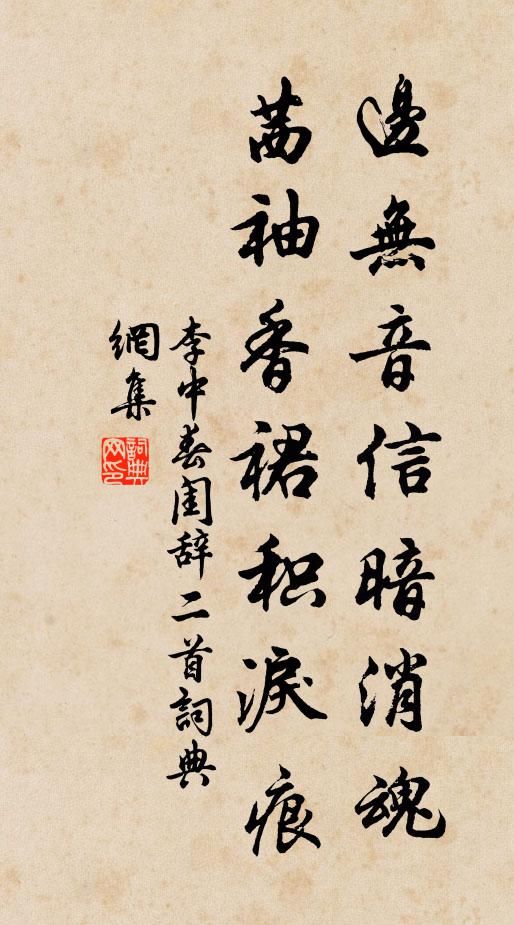 邊無音信暗消魂
茜袖香裙积淚痕
李中春闺辞二首詞典
網集
詞典
网印